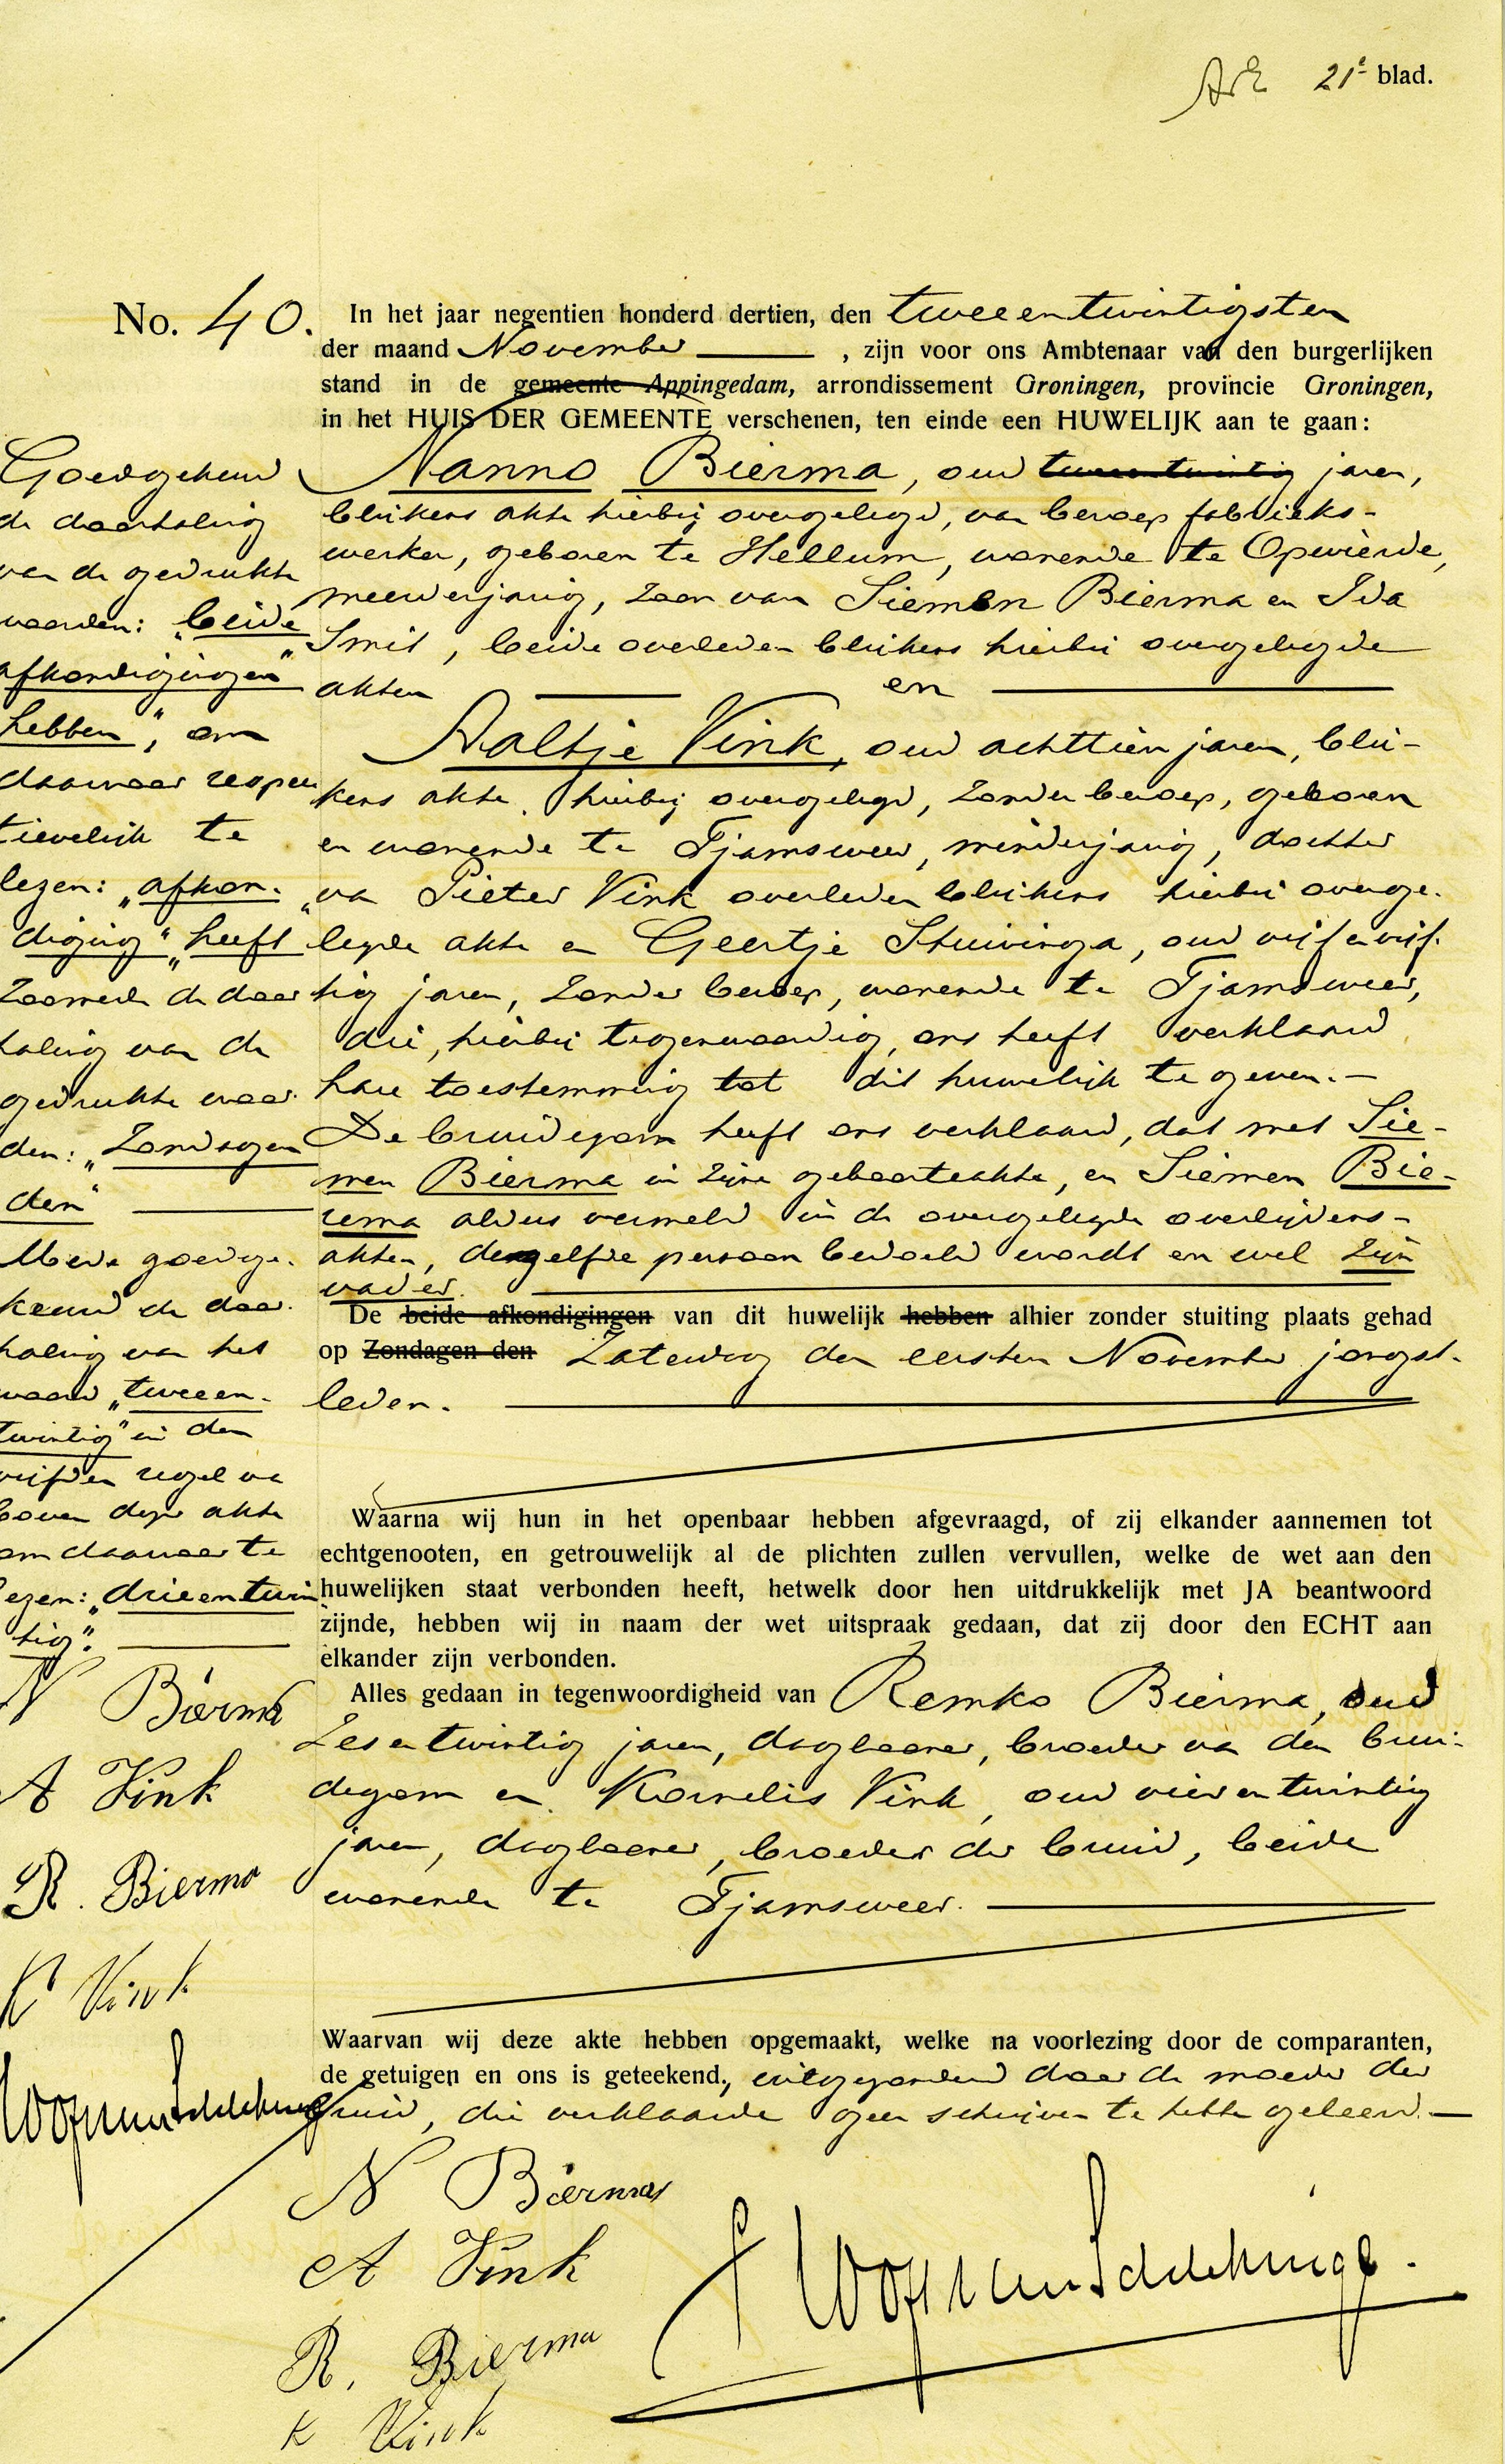 21e blad.
No. 40.
In het jaar negentien honderd dertien, den tweeentwintigsten
der maand November , zijn voor ons Ambtenaar van den burgerlijken
stand in de gemeente Appingedam, arrondissement Groningen, provincie Groningen,
in het HUIS DER GEMEENTE verschenen, ten einde een HUWELIJK aan te gaan:
Nanno Bierma, oud tweeentwintig jaren,
blijkens akte hierbij overgelegd, van beroep fabrieks-
werker, geboren te Hellum, wonende te Opwierde,
meerderjarig, zoon van Siemen Bierma en Ida
Smit, beide overleden blijkens hierbij overgelegde
akten en
Aaltje Vink, oud achttien jaren, blij-
kens akte hierbij overgelegd, zonder beroep, geboren
en wonende te Tjamsweer, minderjarig, dochter
van Pieter Vink overleden blijkens hierbij overge-
legde akte en Geertje Stuivinga, oud vijf en vijf-
tig jaren, zonder beroep, wonende te Tjamsweer,
die, hierbij tegenwoordig, ons heeft verklaard
hare toestemming tot dit huwelijk te geven.-
De bruidegom heeft ons verklaard, dat met Sie-
men Bierma in zijne geboorteakte, en Siemen Bie-
rema aldus vermeld in de overgelegde overlijdens-
akten, dezelfde persoon bedoeld wordt en wel zijn
vader.
De beide afkondigingen van dit huwelijk hebben alhier zonder stuiting plaats gehad
op Zondagen den Zaterdag den eersten November jongst-
leden.
Waarna wij hun in het openbaar hebben afgevraagd, of zij elkander aannemen tot
echtgenooten, en getrouwelijk al de plichten zullen vervullen, welke de wet aan den
huwelijken staat verbonden heeft, hetwelk door hen uitdrukkelijk met JA beantwoord
zijnde, hebben wij in naam der wet uitspraak gedaan, dat zij door den ECHT aan
elkander zijn verbonden.
Alles gedaan in tegenwoordigheid van Remko Bierma, oud
zesentwintig jaren, daglooner, broeder van den brui-
degom en Kornelis Vink, oud vierentwintig
jaren, daglooner, broeder der bruid, beide
wonende te Tjamsweer.
Waarvan wij deze akte hebben opgemaakt, welke na voorlezing door de comparanten,
de getuigen en ons is geteekend, uitgezonderd door de moeder der
bruid, die verklaarde geen schrijven te hebben geleerd.-
N Bierma
A Vink
R. Bierma
K Vink
Goedgekeurd
de doorhaling
van de gedrukte
woorden: "beide
afkondigingen"
hebben", om
daarvoor respec
tievelijk te
lezen: "afkon-
diging" "heeft
zoomede de door
haling van de
gedrukte woor-
den: "Zondagen
den"
Mede goedge-
keurd de door-
haling van het
woord "tweeen-
twintig" in den
vijfden regel van
boven dezer akte
om daarvoor te
lezen: "drieentwin
tig".
N Bierma
A Vink
R. Bierma
K Vink